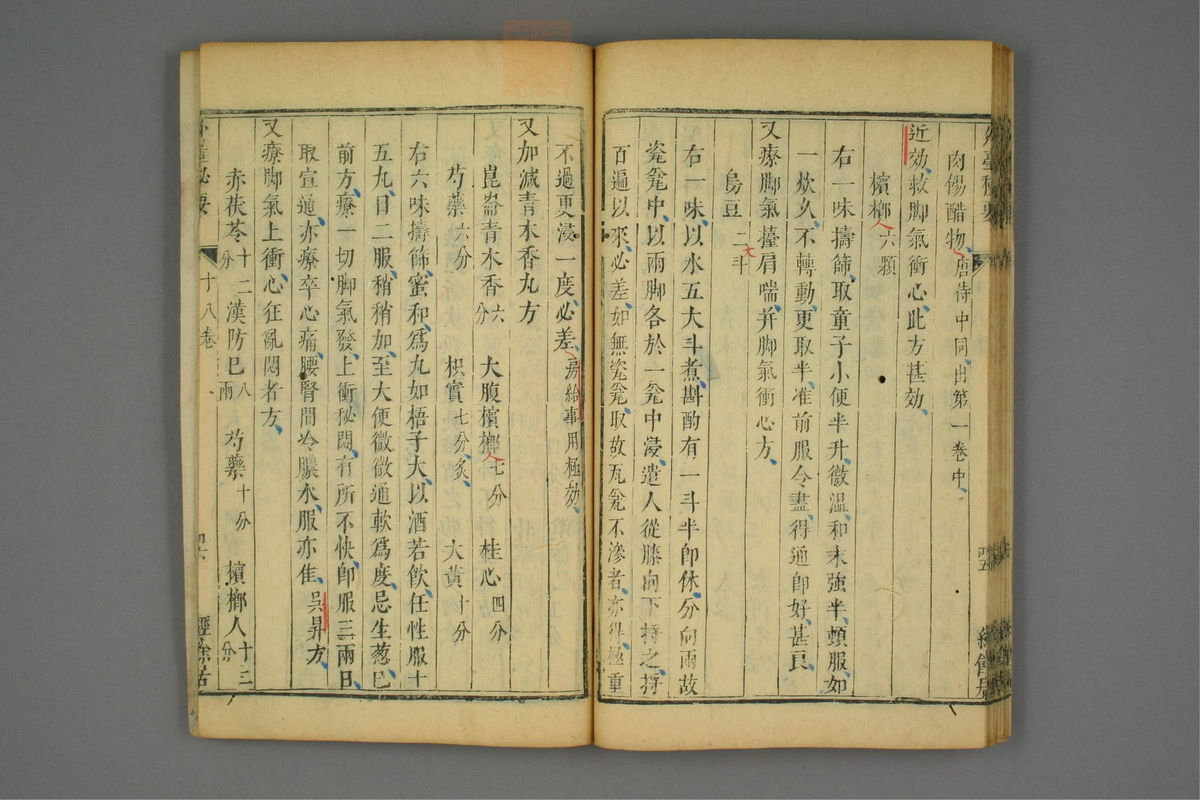 肉傷醋物唐侍中同出第一卷中
近効救脚氣衝心此方甚効
檳榔人六顆
右一味擣篩取童子小便半升微溫和末強半頓服如
一炊久不轉動更取半准前服令盡得通即好甚良
又療脚氣擡肩喘并脚氣衝心方
烏豆二大斗
右一味以水五大斗煮斟酌有一斗半即休分向兩故
瓷瓮中以兩脚各於一瓮中浸遣人從膝向下捋之捋
百遍以來必差如無瓷瓮取故瓦瓮不滲者亦得極重
不過更浸一度必差房給事用極効
又加減青木香丸方
崑崙青木香六分 大腹檳榔人七分 桂心四分
芍藥六分 枳實七分炙 大黃十分
右六味擣篩蜜和爲丸如梧子大以酒若飲任性服十
五丸日二服稍稍加至大便微微通軟爲度忌生葱巴
前方療一切脚氣發上衝秘悶有所不快即服三兩日
取宣通亦療卒心痛腰腎間冷膿水服亦隹吳昇方
又療脚氣上衝心狂亂悶者方
赤茯苓十二分 漢防巳八兩 芍藥十分 檳榔人十三分
外臺秘要 十八卷 四六 經餘居